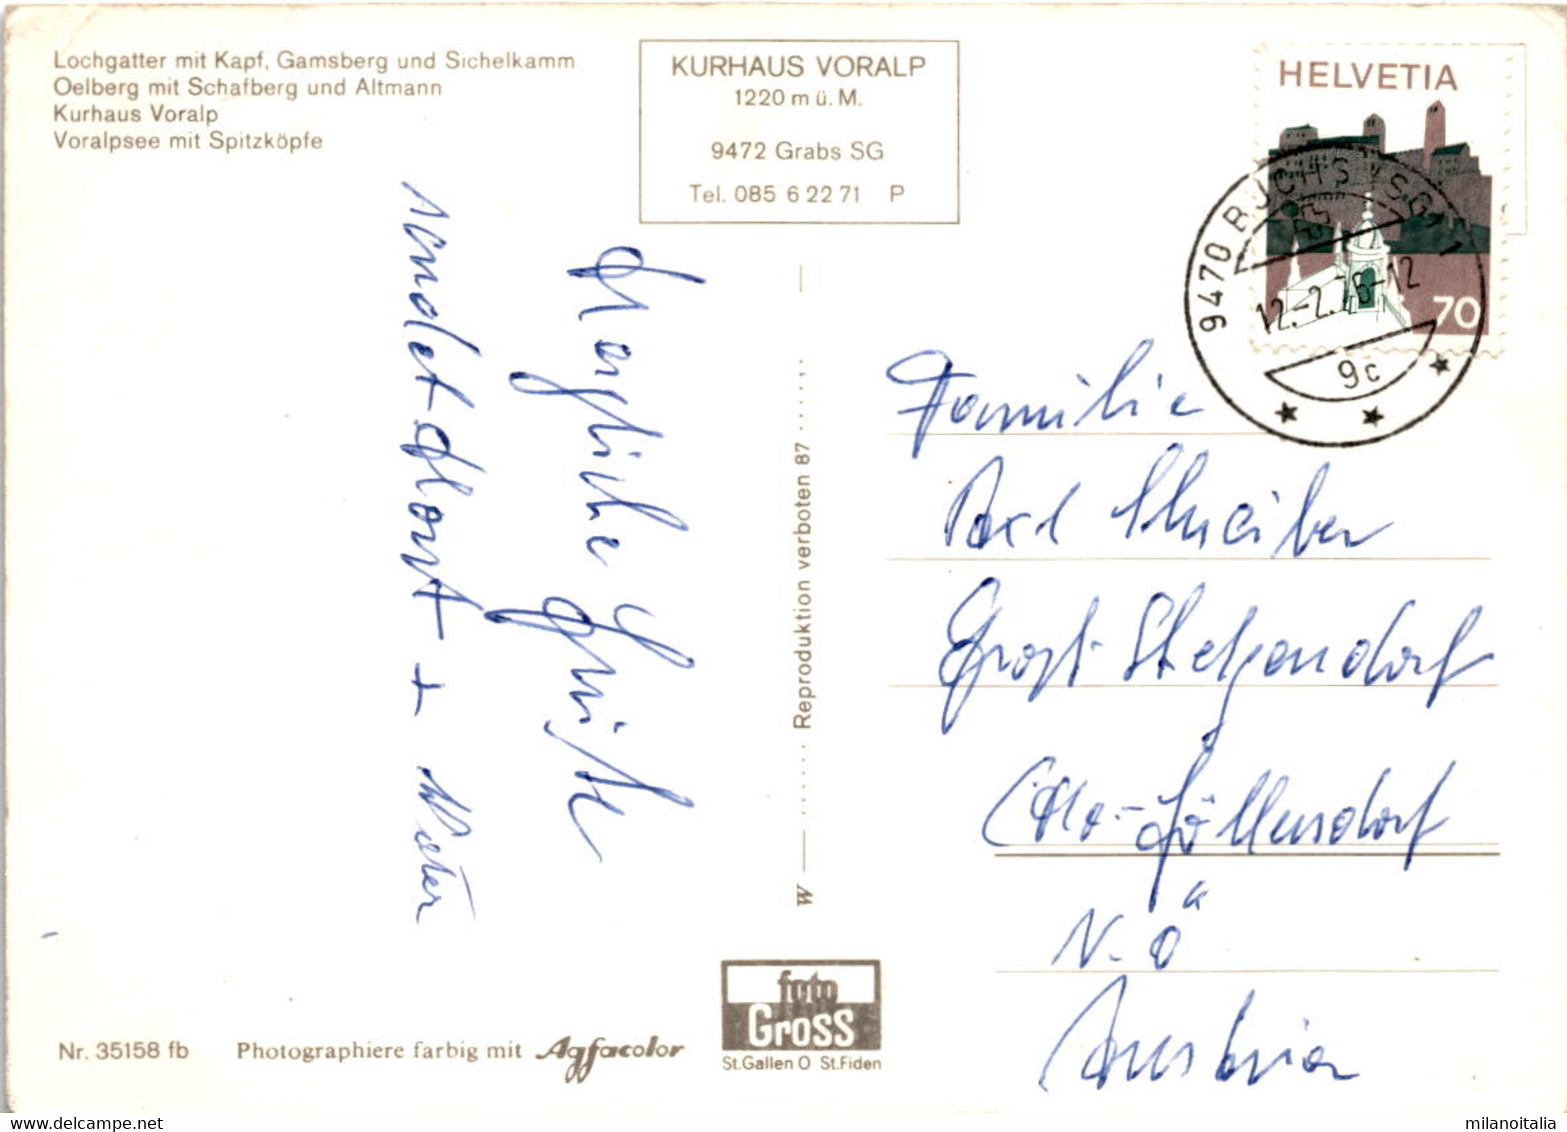 Lochgatter mit Kapf, Gamsberg und Sichelkamm
Oelberg mit Schafberg und Altmann
Kurhaus Voralp
Voralpsee mit Spitzköpfe
KURHAUS VORALP
1220 m ü. M.
9472 Grabs SG
Tel. 085 6 22 71 P
HELVETIA
70
9470 BUCHS (SG) 1
12.-2.76-12
9c
Herzliche Grüße
Horst + 
Reproduktion verboten 87
W
Familie
Axel Schreiber
Groß-Stelzendorf
Göllersdorf
N.Ö
Austria
foto
Gross
St.Gallen O St.Fiden
Nr. 35158 fb
Photographiere farbig mit Agfacolor
www.delcampe.net
milanoitalia